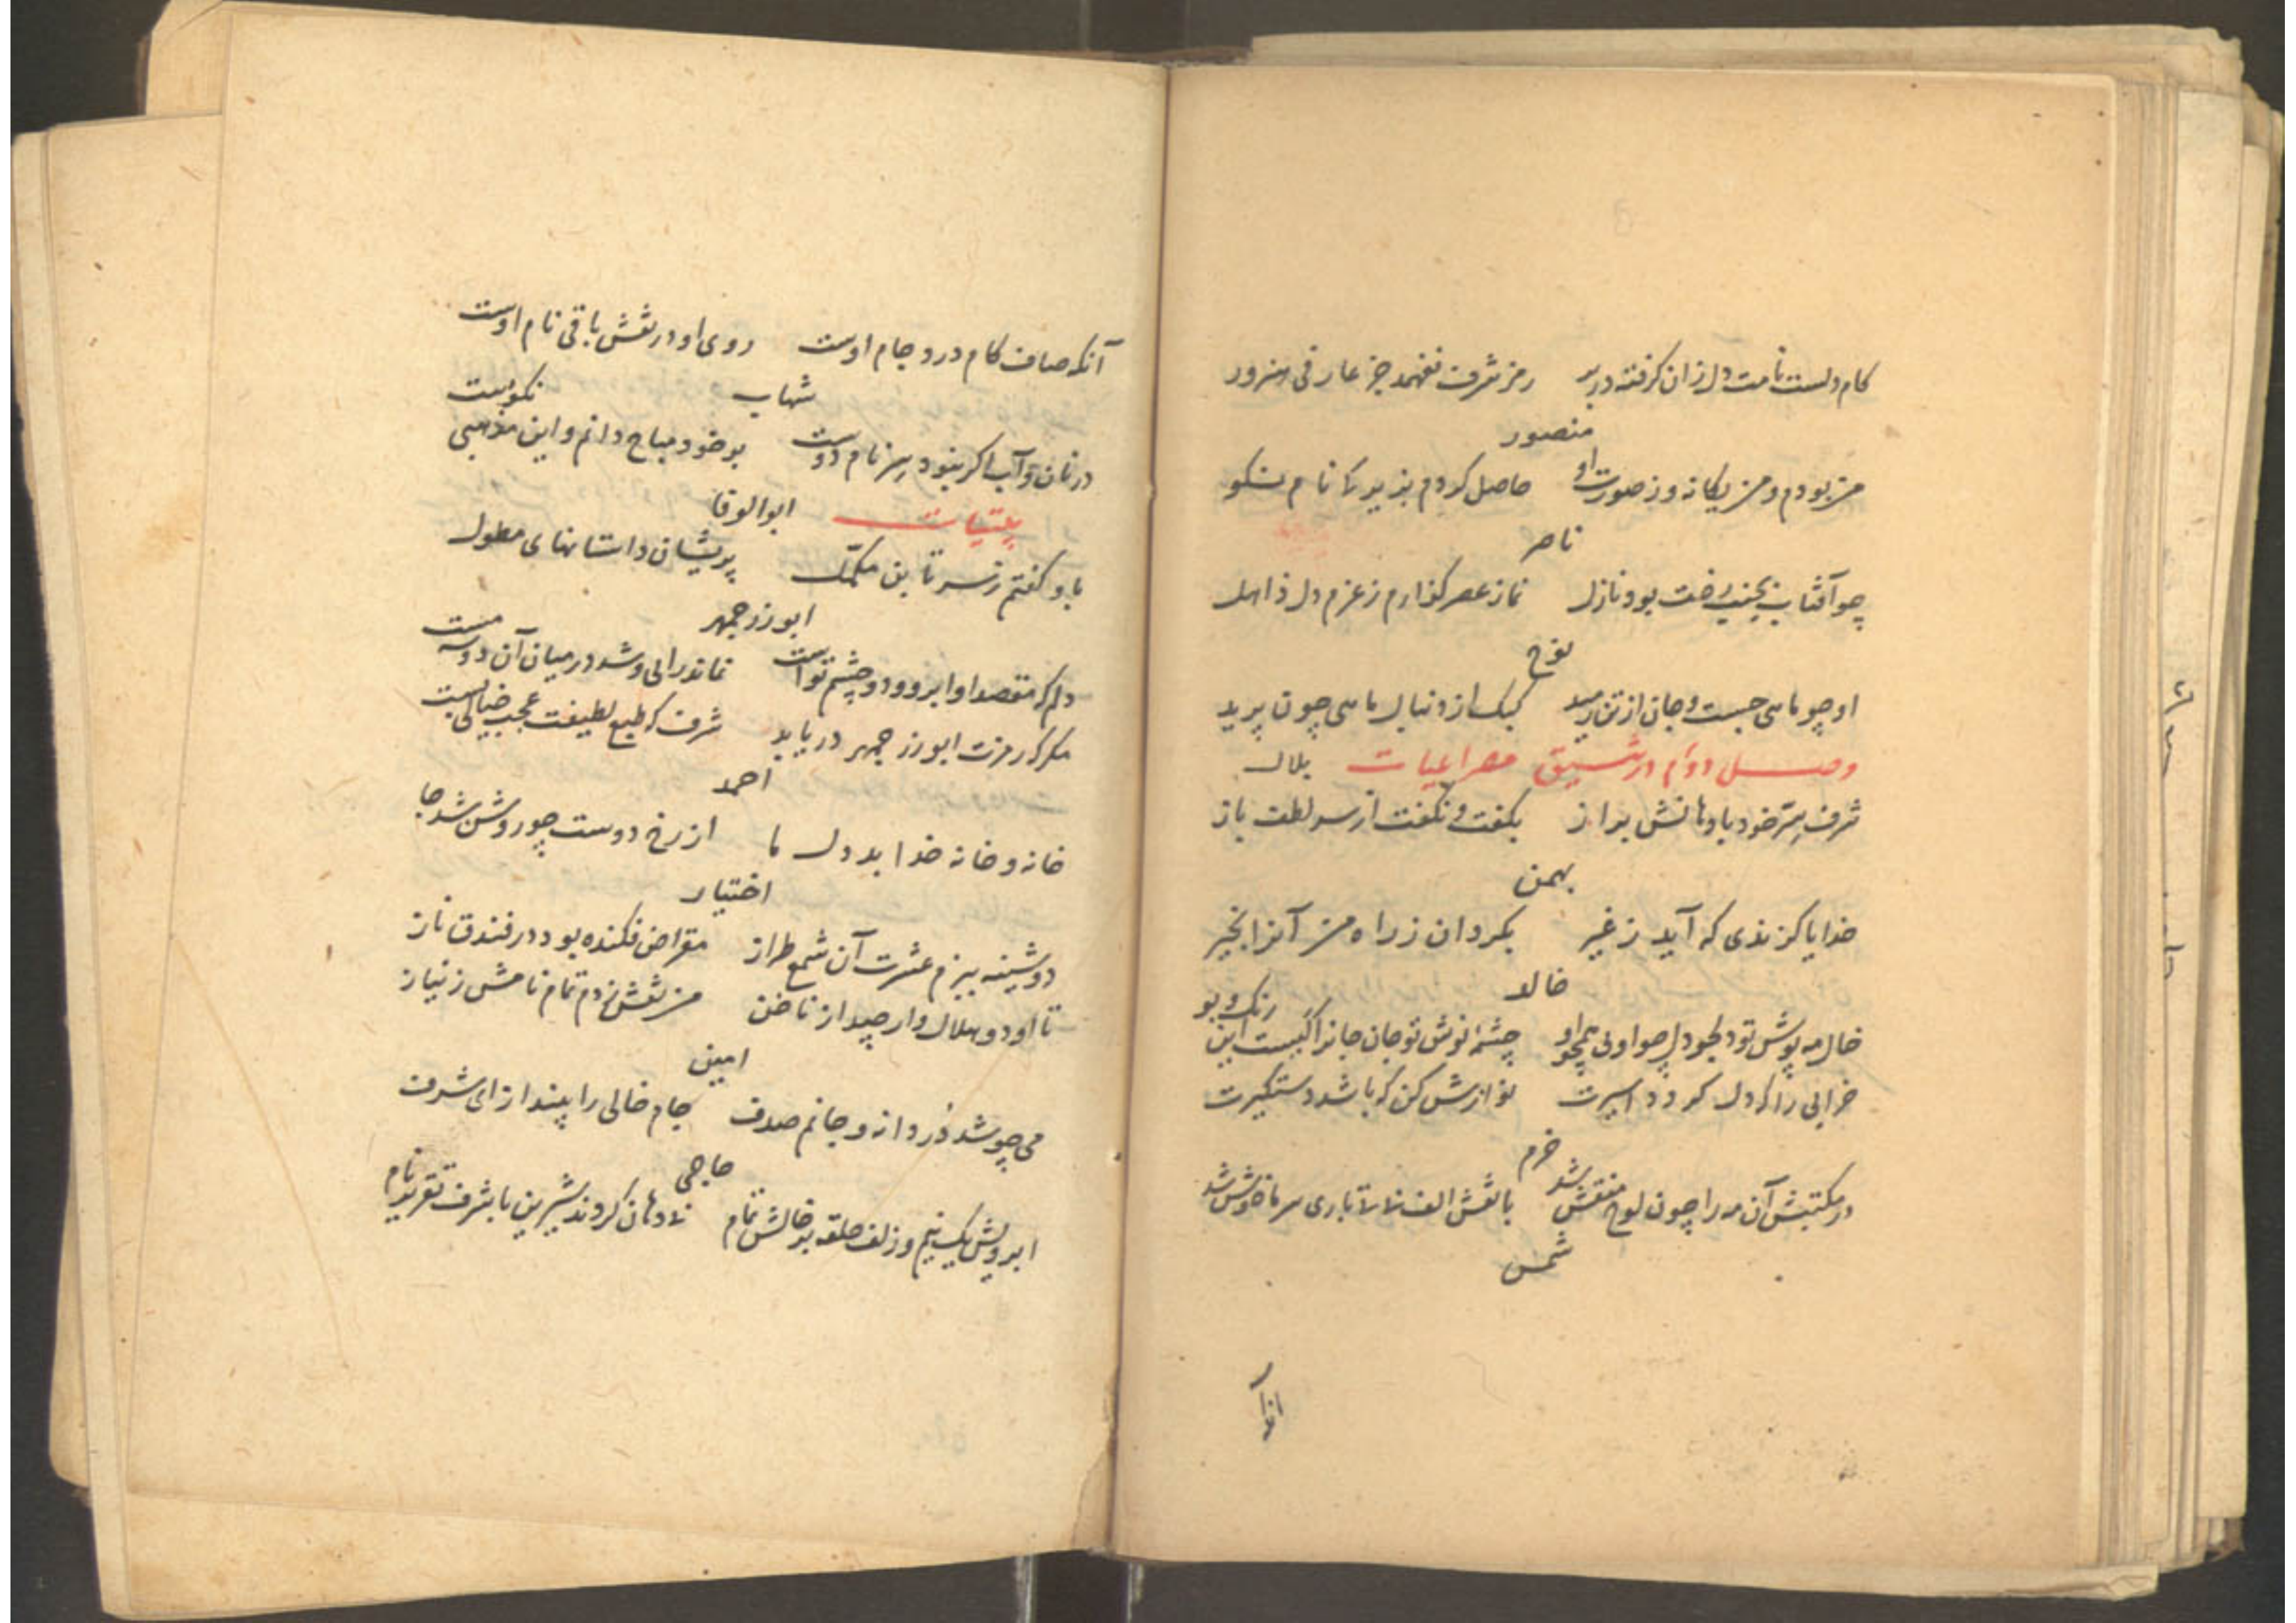 کام دلست نامت دل زان کرفته در بر رمز شرف نفهمد جز عارفی هنرور
منصور
من بودم و من یکانه وز صورت او حاصل کردم بذیر کا نام نکو
ناصر
چو آفتاب بجنب رخت بود نازل نماز عصر کذارم ز عزم دل ذاهل
نوح
او چو ماهی جست و جان از تن رمید کبک از دنبال ماهی چون پرید
وصل دوم در مصراعیات بلال
شرف سر خود با دهانش براز بکفت و نکفت از سر لطف باز
بهمن
خدایا کزندی که آید ز غیر بکردان ز راه من آنرا بخیر
خالد
خال مه پوش تو دلجو دل چو او نی همچو او چشمهٔ نوش تو جان جانرا کیست این رنک و بو
خرابی را که دل کردد اسیرت نوازش کن که باشد دستکیرت
خرم
در مکتبش آن مه را چون لوح منقش شد با نقش الف تا باری سر ما خوش شد
شمس
آنکه صاف کام درد جام اوست روی او در نقش باقی نام اوست
شهاب
در نان و آب اکر بنود رمز نام دوست بر خود مباح دانم و این مذهبی نکوست
بیتیات ابوالوفا
باو کفتم ز سر تا بن مکمل پریشان داستانهای مطول
ابوزرجمهر
دلم که مقصد او ابرو و دو چشم تو است نماند رایی و شد در میان آن دو سه مست
مکر که رمزت ابوزرجمهر دریابد شرف که طبع لطیفت عجب خیالی بست
احمد
خانه و خانه خدا بد دل ما از رخ دوست چو روشن شد جا
اختیار
دوشینه ببزم عشرت آن شمع طراز مقراض فکنده بود در فندق ناز
تا او دو هلال وار چید از ناخن من نقش زدم تمام نامش ز نیاز
امین
می چو شد در دانه و جانم صدف جام خالی را پیندازای شرف
حاجی
ابرویش یک نیم وز زلف حلقه بر خالش تمام دهان کروند شیرین با شرف تقریر نام